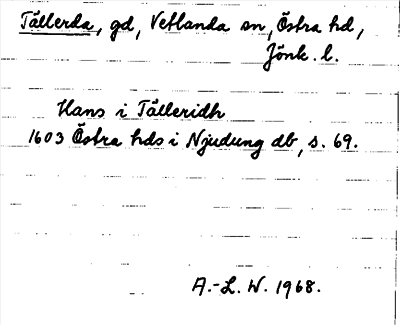 Tållerda, gd, Vetlanda sn, Östra hd,
Jönk. l.
Hans i Tålleridh
1603 Östra hds i Njudung db, s. 69.
A.-L. W. 1968.